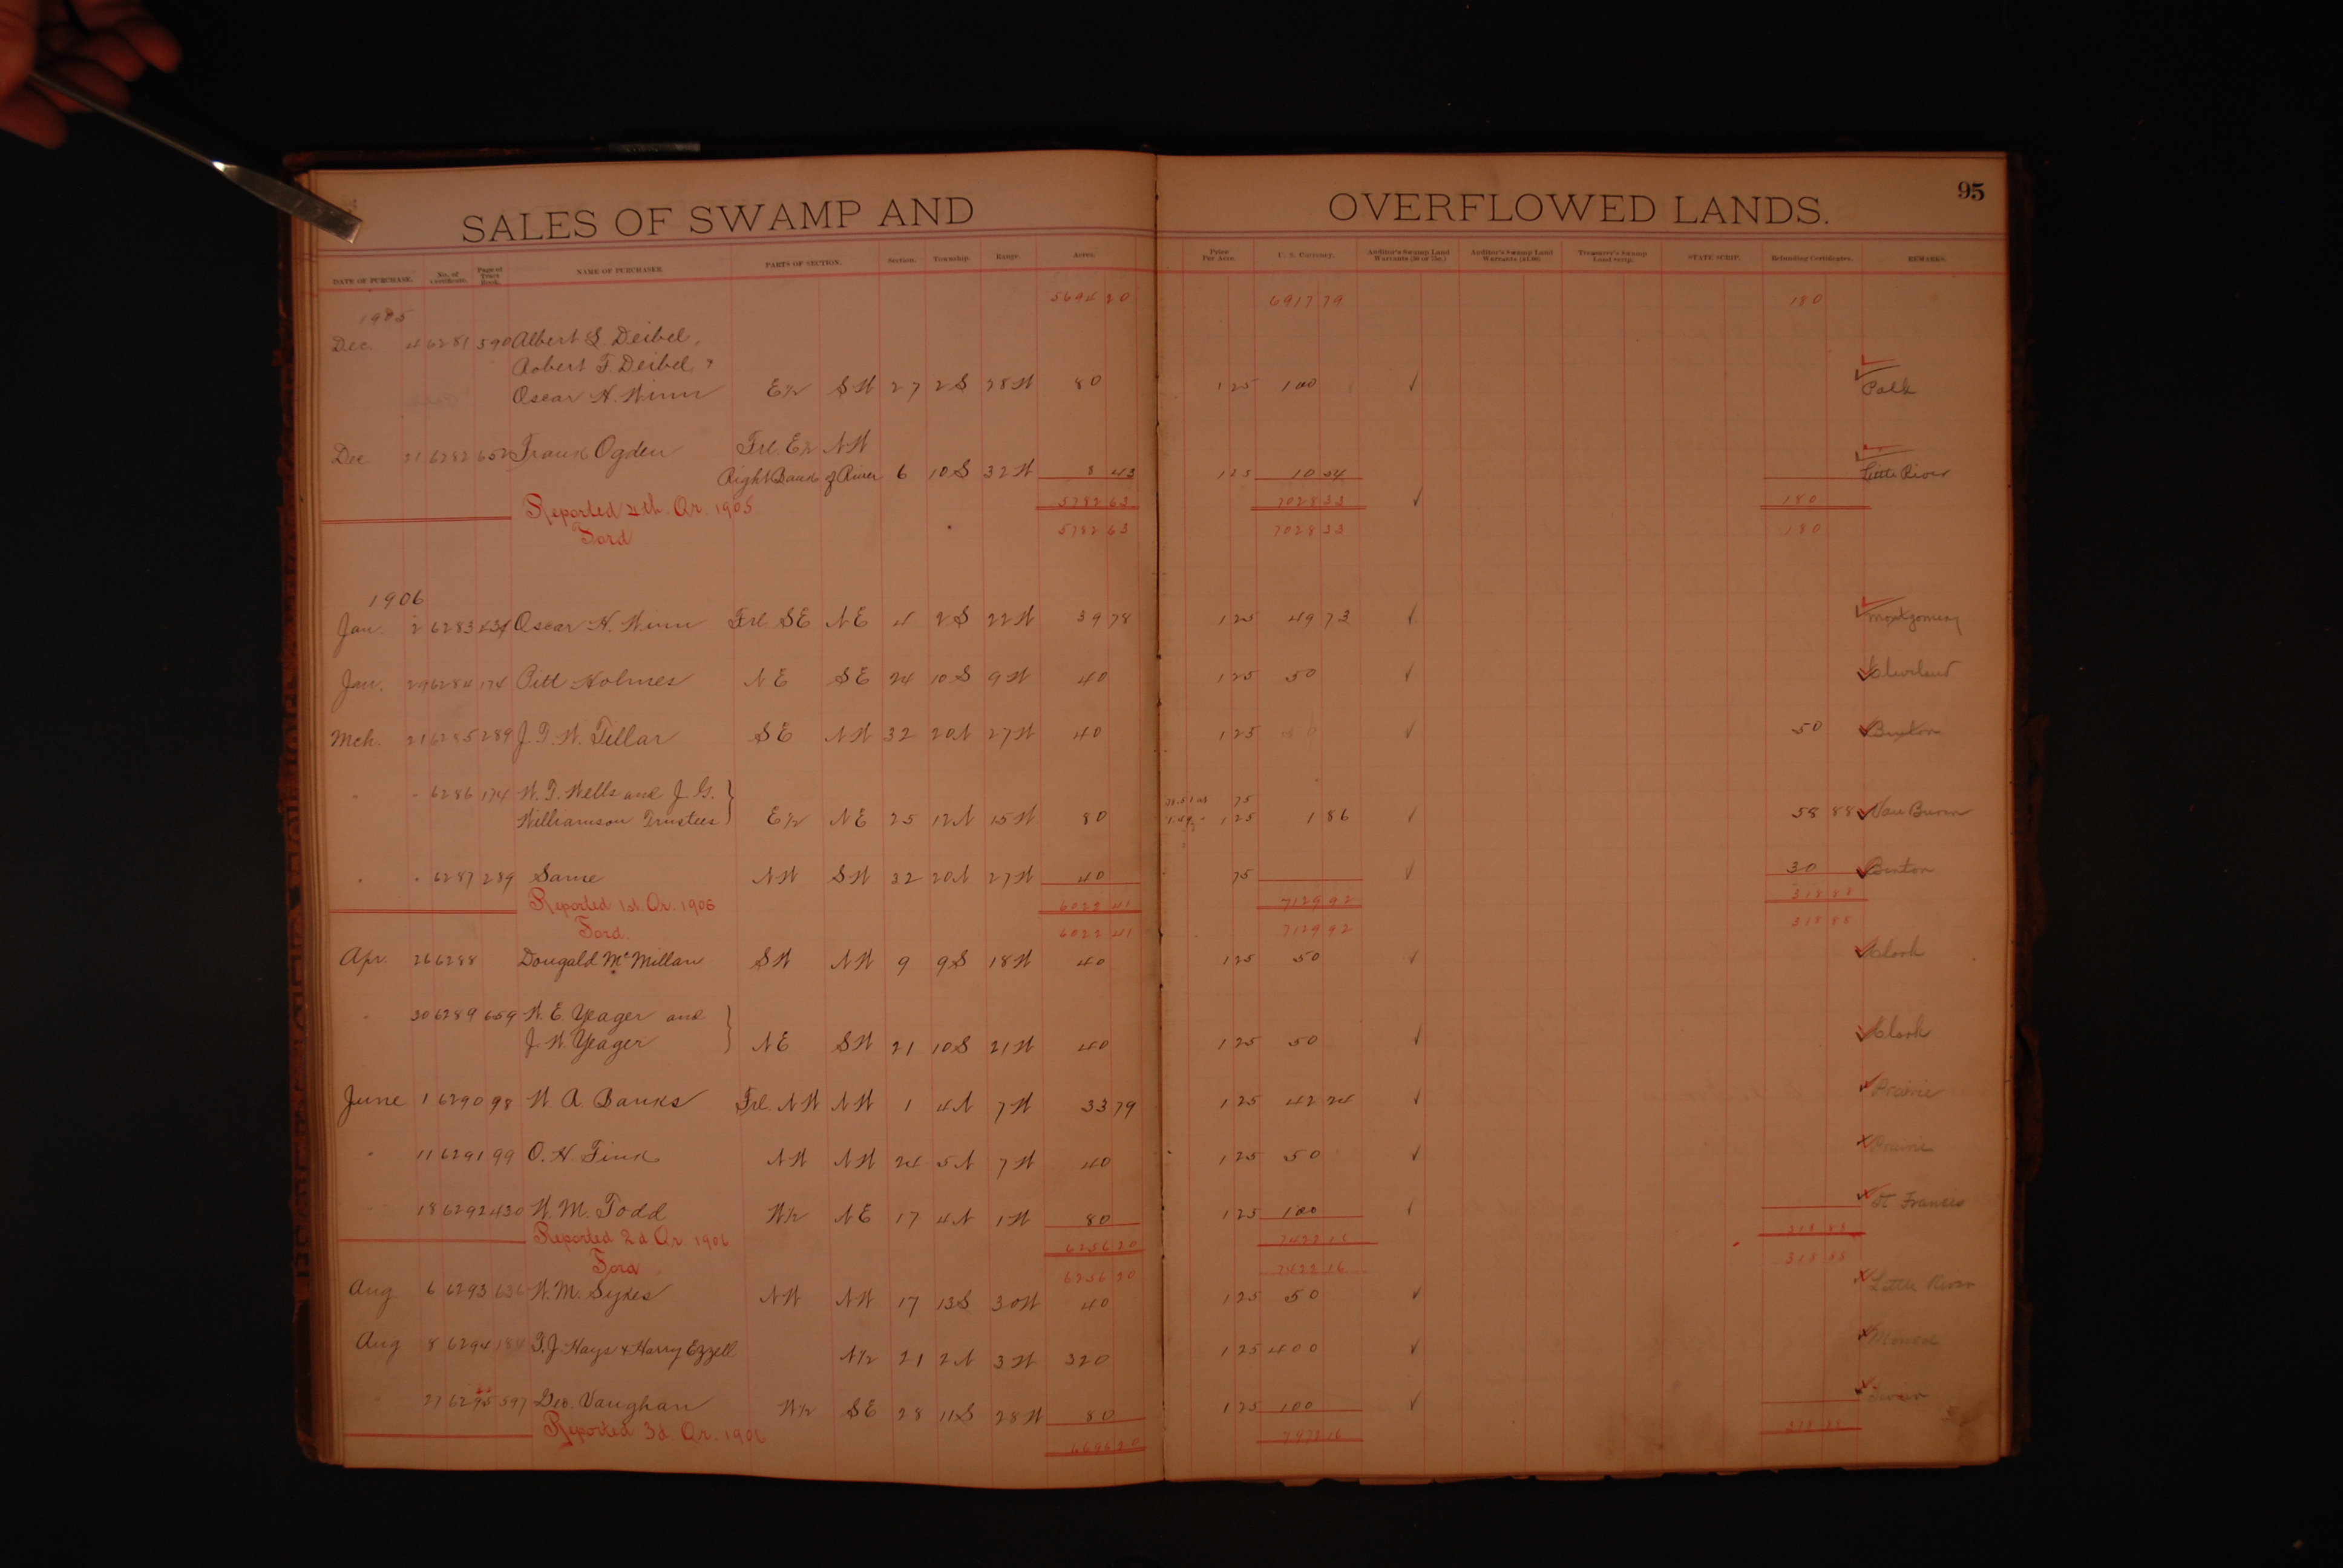 SALES OF SWAMP AND OVERFLOWED LANDS. 95
DATE OF PURCHASE. No. of Certificate. Page of Tract Book. NAME OF PURCHASER. PARTS OF SECTION. Section. Township. Range. Acres. Price Per Acre. U. S. Currency. Auditor's Swamp Land Warrants (50 or 75c.) Auditor's Swamp Land Warrants ($1.00) Treasurer's Swamp Land Scrip. STATE SCRIP. Refunding Certificates. REMARKS.
5694 20 6917 79 180
1905
Dec. 4 6281 590 Albert S. Deibel,
Robert F. Deibel, &
Oscar H. Winn E½ SW 27 2S 28W 80 1 25 100 ✓ Polk
Dec 21 6282 652 Frank Ogden Frl. E½ NW
Right Bank of River 6 10S 32W 8 43 1 25 10 54 Little River
Reported 4th. Qr. 1905 5782 63 7028 33 ✓ 180
Ford 5782 63 7028 33 180
1906
Jan. 2 6283 434 Oscar H. Winn Frl. SE NE 4 2S 22W 39 78 1 25 49 73 ✓ Montgomery
Jan. 29 6284 174 Pitt Holmes NE SE 24 10S 9W 40 1 25 50 ✓ Cleveland
Mch. 21 6285 289 J. T. W. Tillar SE NW 32 20N 27W 40 1 25 50 ✓ 50 Benton
" " 6286 174 W. T. Wells and J. G.
Williamson Trustees } E½ NE 25 12N 15W 80 78.51 as 75 1.49 " 1 25 1 86 ✓ 58 88 Van Buren
" " 6287 289 Same NW SW 32 20N 27W 40 75 ✓ 30 Benton
Reported 1st Qr. 1906 6022 41 7129 92 318 88
Ford. 6022 41 7129 92 318 88
Apr. 26 6288 Dougald McMillan SW NW 9 9S 18W 40 1 25 50 ✓ Clark
" 30 6289 659 W. E. Yeager and
J. W. Yeager } NE SW 21 10S 21W 40 1 25 50 ✓ Clark
June 1 6290 98 W. A. Banks Frl. NW NW 1 4N 7W 33 79 1 25 42 24 ✓ Prairie
" 11 6291 99 O. H. Fink NW NW 24 5N 7W 40 1 25 50 ✓ Prairie
" 18 6292 430 W. M. Todd W½ NE 17 4N 1W 80 1 25 100 ✓ St Francis
Reported 2d Qr 1906 6256 20 7422 16 318 88
Ford 6256 20 7422 16 318 88
Aug 6 6293 636 W. M. Sykes NW NW 17 13S 30W 40 1 25 50 ✓ Little River
Aug 8 6294 184 T. J. Hays & Harry Ezzell N½ 21 2N 3W 320 1 25 400 ✓ Monroe
" 27 6295 597 Geo. Vaughan W½ SE 28 11S 28W 80 1 25 100 ✓
Reported 3d Qr. 1906 6696 20 7972 16 318 88